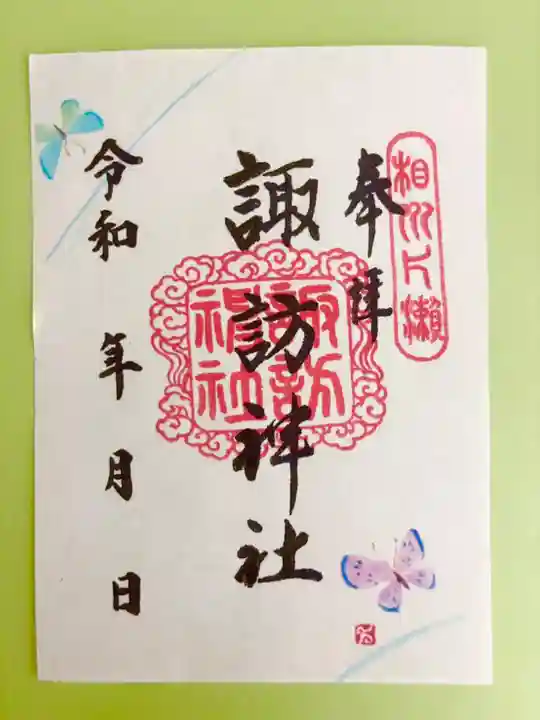 相州八瀬
奉拝
諏訪神社
諏訪神社
令和 年 月 日